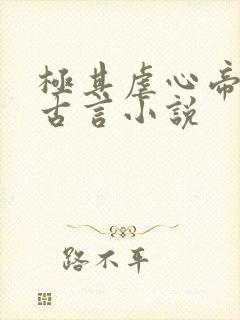 極其虐心帝
古言小說
路不平